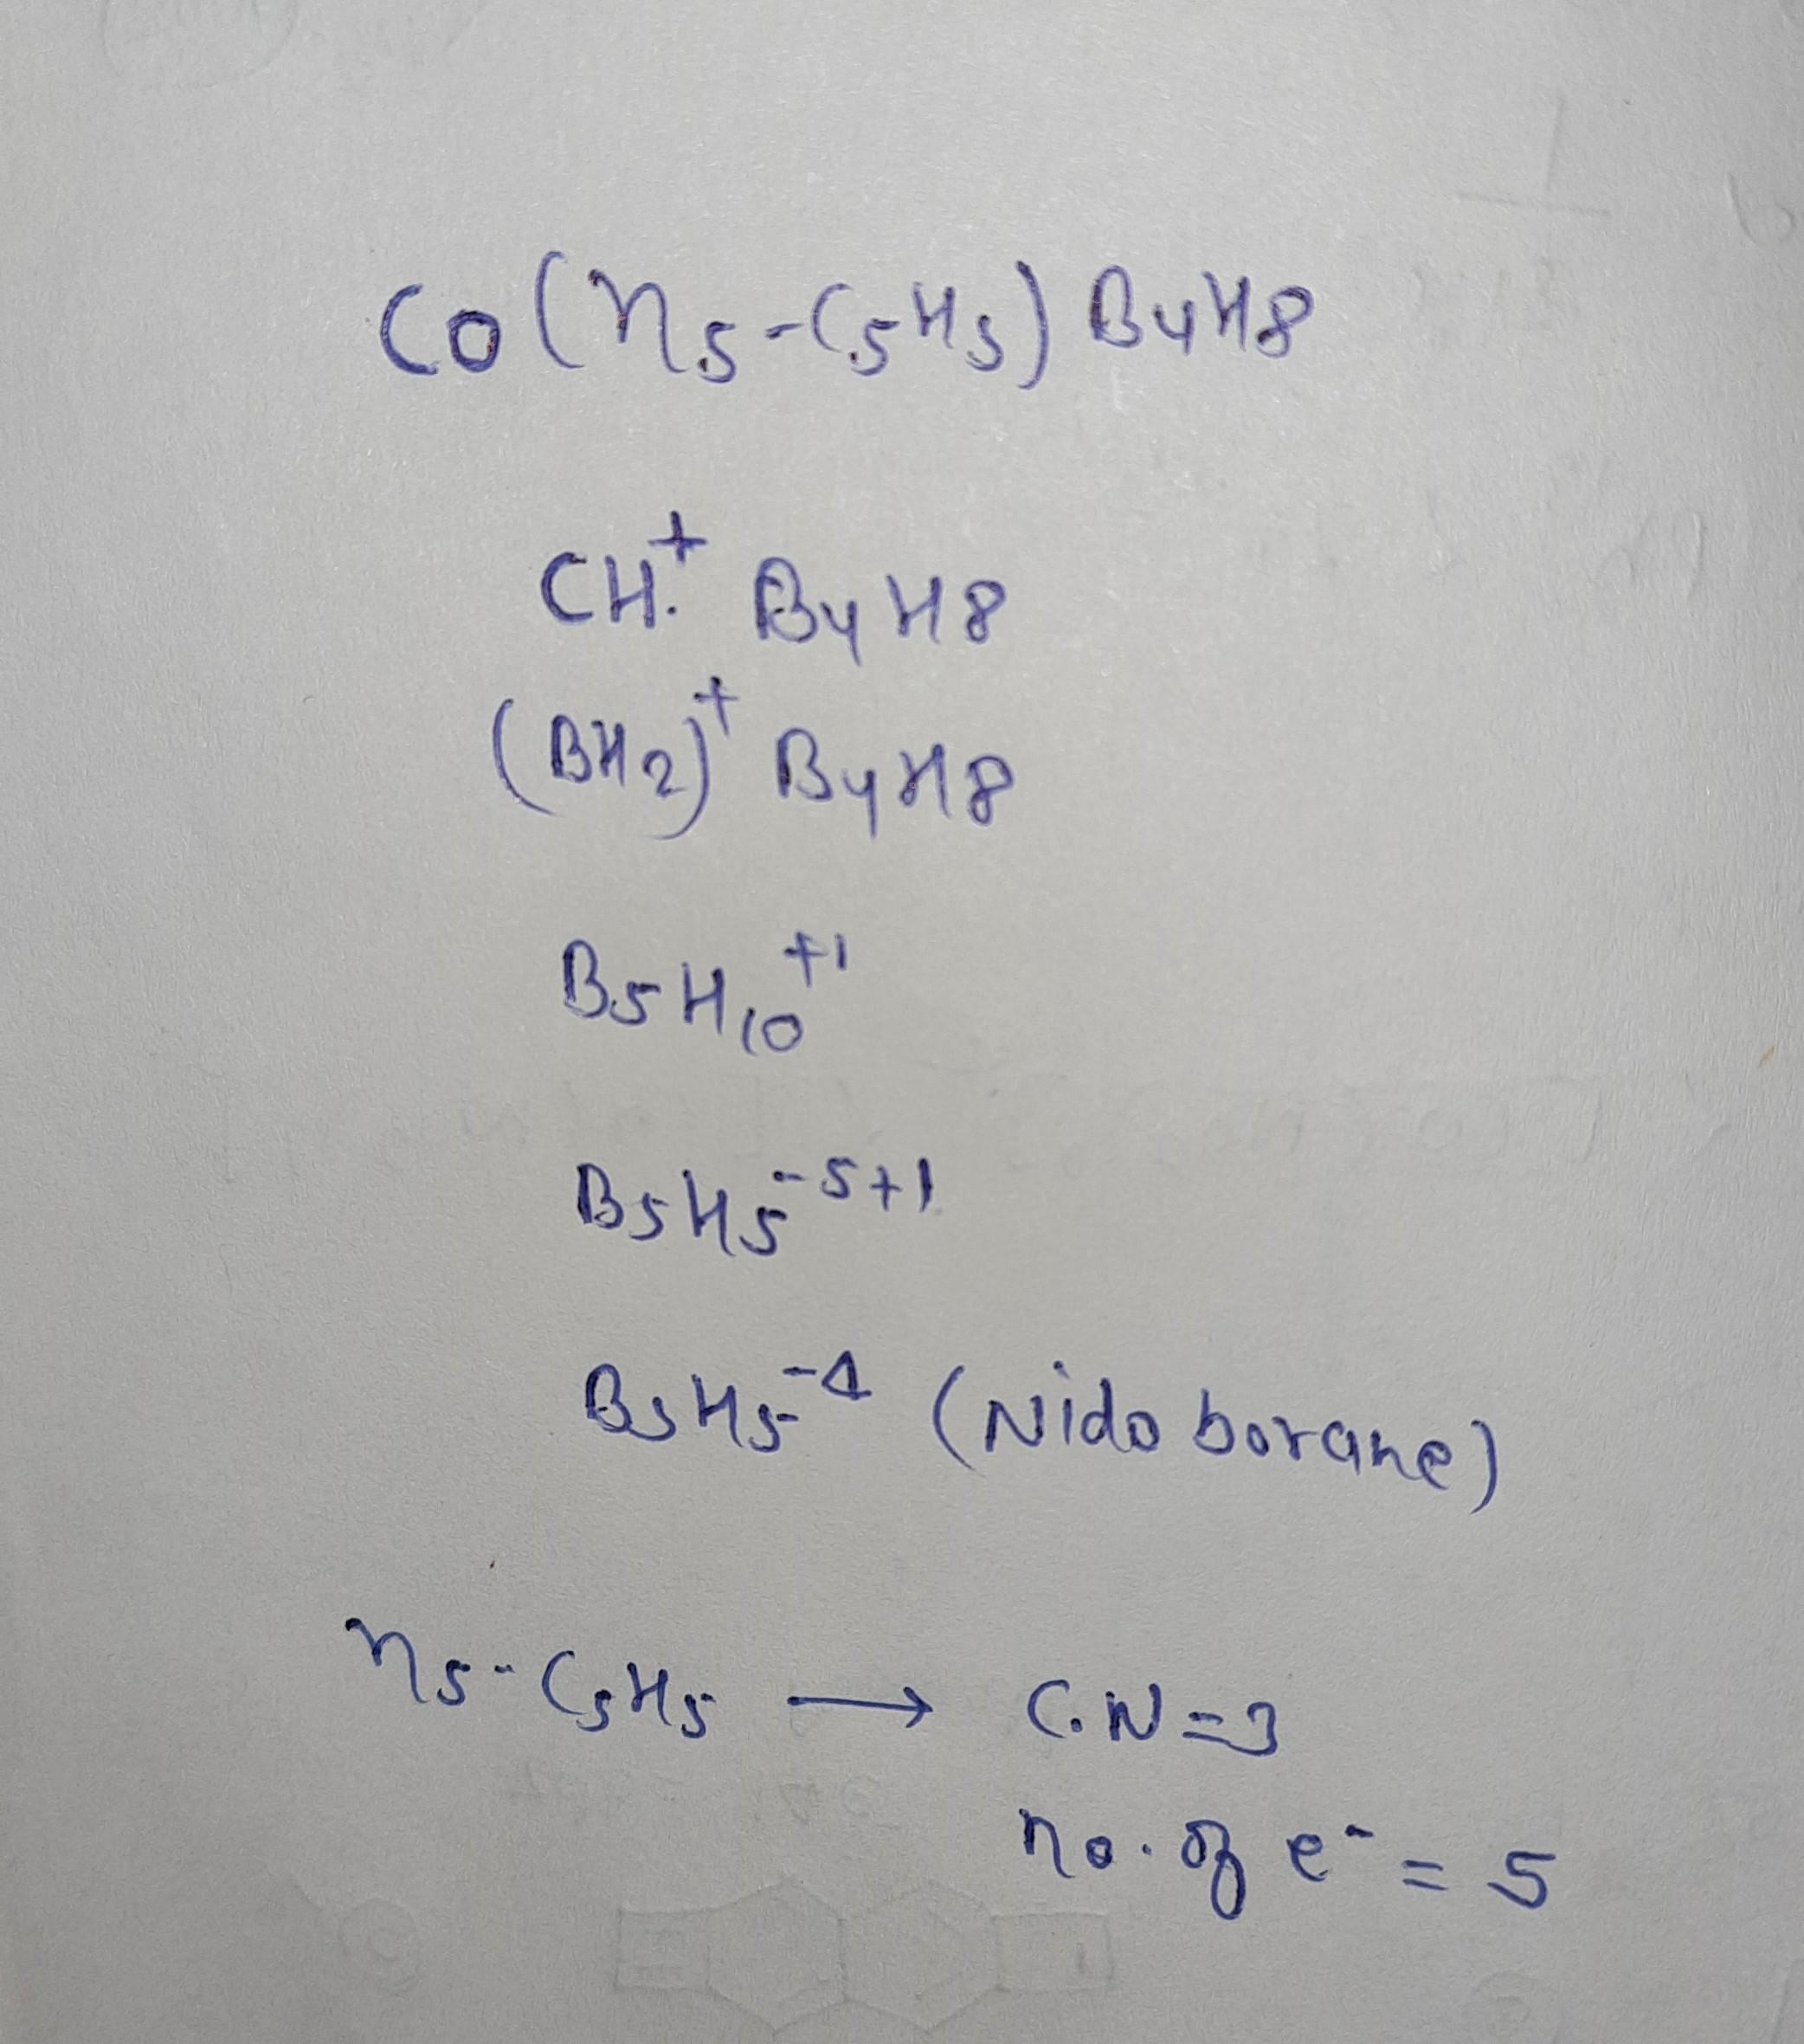 Co(η5-C5H5) B4H8
CH.+ B4H8
(BH2)+ B4H8
B5H10+1
B5H5-5+1
B5H5-4 (Nido borane)
η5-C5H5 → C.N=3
no. of e- = 5